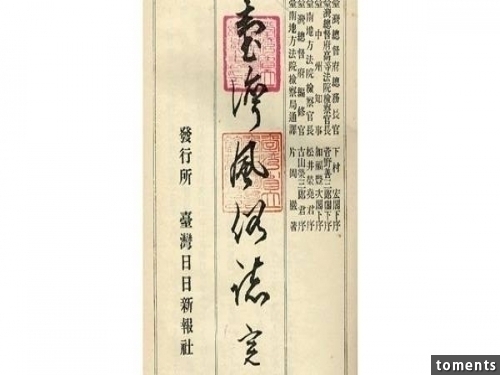 臺灣總督府總務長官 下村 宏閣下序
臺灣總督府高等法院檢察官長 菅野善三郎閣下序
臺中州知事 加福豐次閣下序
臺南地方法院檢察官長 松井榮堯君序
臺灣總督府編修官 古山榮三郎君序
臺南地方法院檢察局通譯 片岡巖著
臺灣風俗誌 完
發行所 臺灣日日新報社
toments